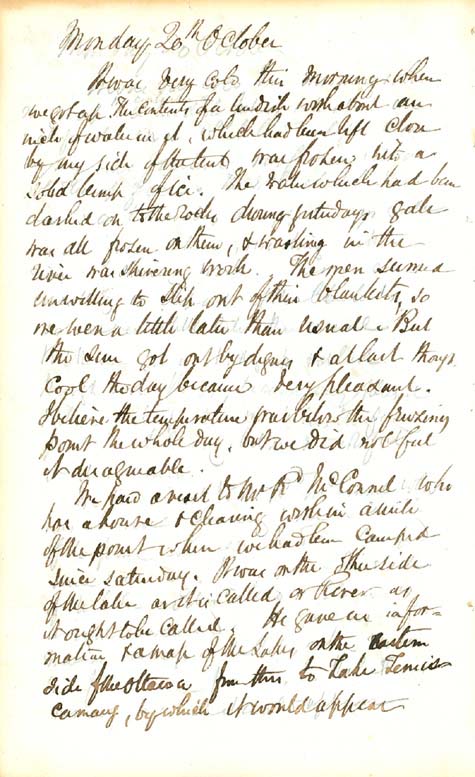 Monday 20th October
It was very cold this morning when
we got up. The contents of a tin dish with about an
inch of water in it, which had been left close
by my side of the tent was frozen into a
solid lump of ice. The water which had been
dashed on to the rocks during yesterdays gale
was all frozen on them, & washing in the
river was shivering work. The men seemed
unwilling to slip out of their blankets, so
we were a little later than usual. But
the sun got out by degrees & at last though
cool the day became very pleasant.
I believe the temperature was below the freezing
point the whole day, but we did not feel
it disagreeable.
We paid a visit to Mr Rd McConnel who
has a house & clearing within a mile
of the point where we had been camped
since saturday. It was on the other side
of the lake as it is called or River as
it ought to be called. He gave us infor-
mation & a map of the Lakes on the eastern
side of the Ottawa from this to Lake Temis-
camang, by which it would appear